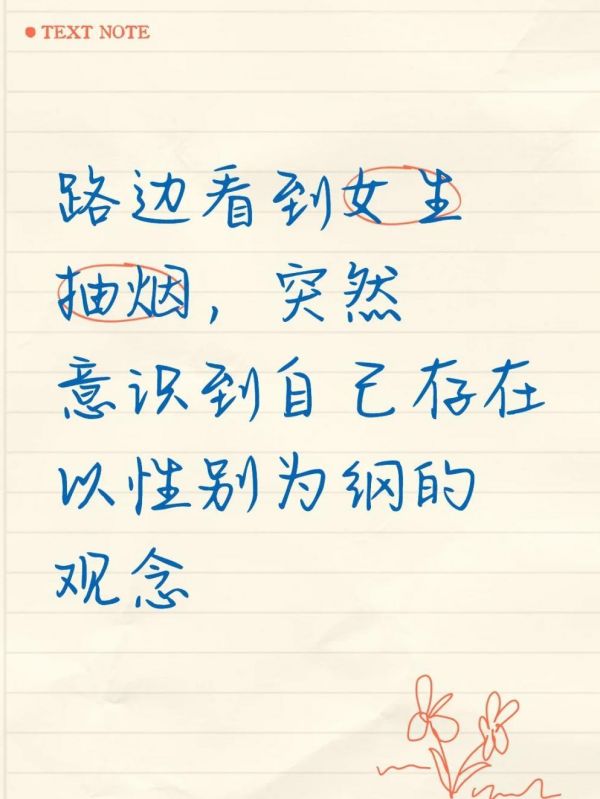 TEXT NOTE
路边看到女生
抽烟，突然
意识到自己存在
以性别为纲的
观念